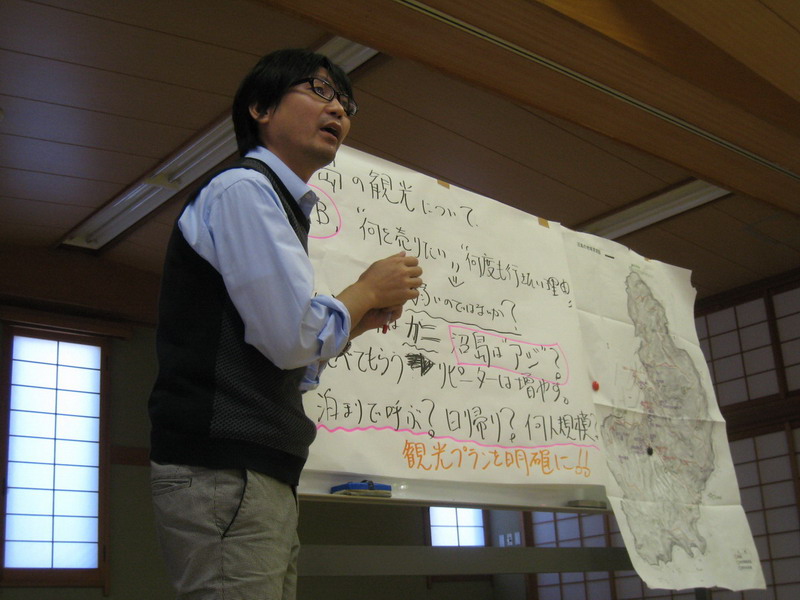 島の観光について
B
"何を売りたい"
"何度も行きたい理由"
いのではないか?
は カニ 沼島は"アジ"?
べてもらう リピーターは増やす。
泊まりで呼ぶ? 日帰り? 何人規模?
観光プランを明確に!!